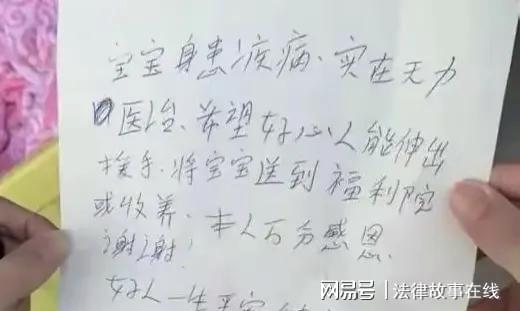 宝宝身患疾病、实在无力
医治、希望好心人能伸出
援手、将宝宝送到福利院
或收养、本人万分感恩、
谢谢!
好人一生平安
网易号 | 法律故事在线